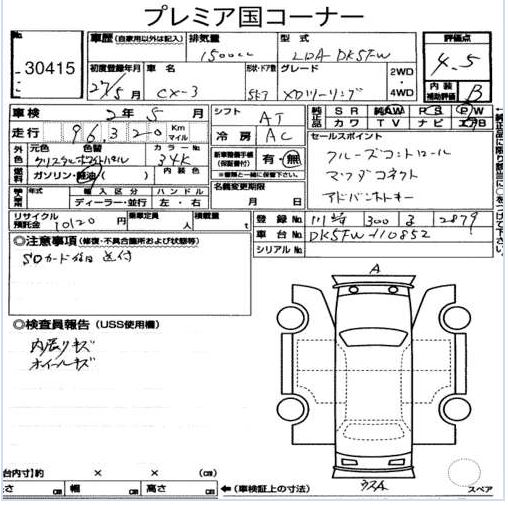 プレミア国コーナー
No. 30415
車歴 (自家用以外は記入)
排気量 1500cc
型式 LDA-DK5FW
評価点 4.5
内装補助評価 B
初度登録年月 27/5月
車名 CX-3
形状・ドア数 5ドア
グレード XDツーリング
2WD・4WD
車検 2年5月
シフト AT
純正品 SR AW PS PW
カワ TV ナビ エアB
走行 96,320 Km マイル
冷房 AC
セールスポイント
外色 元色 色替 カラーNo.
クリスタルホワイトパール 34K
新車整備手帳(保証書付) 有・無
クルーズコントロール
燃料 ガソリン・軽油・( ) 内装色
*保証書と一緒にご提出ください
マツダコネクト
輸入車 年式 輸入区分 ハンドル
名義変更期限 月 日
アドバンストキー
ディーラー・並行 左・右
リサイクル預託金 10120円
乗車定員 人
積載量 t
登録No. 川崎 300 3 2879
車台No. DK5FW-110852
シリアルNo.
◎注意事項 (修復・不具合箇所および状態等)
SDカード後日送付
◎検査員報告 (USS使用欄)
内張りキズ
ホイールキズ
A
台内寸)約 × × (cm)
さ cm 幅 cm 高さ cm
←(車検証上の寸法)
スペア